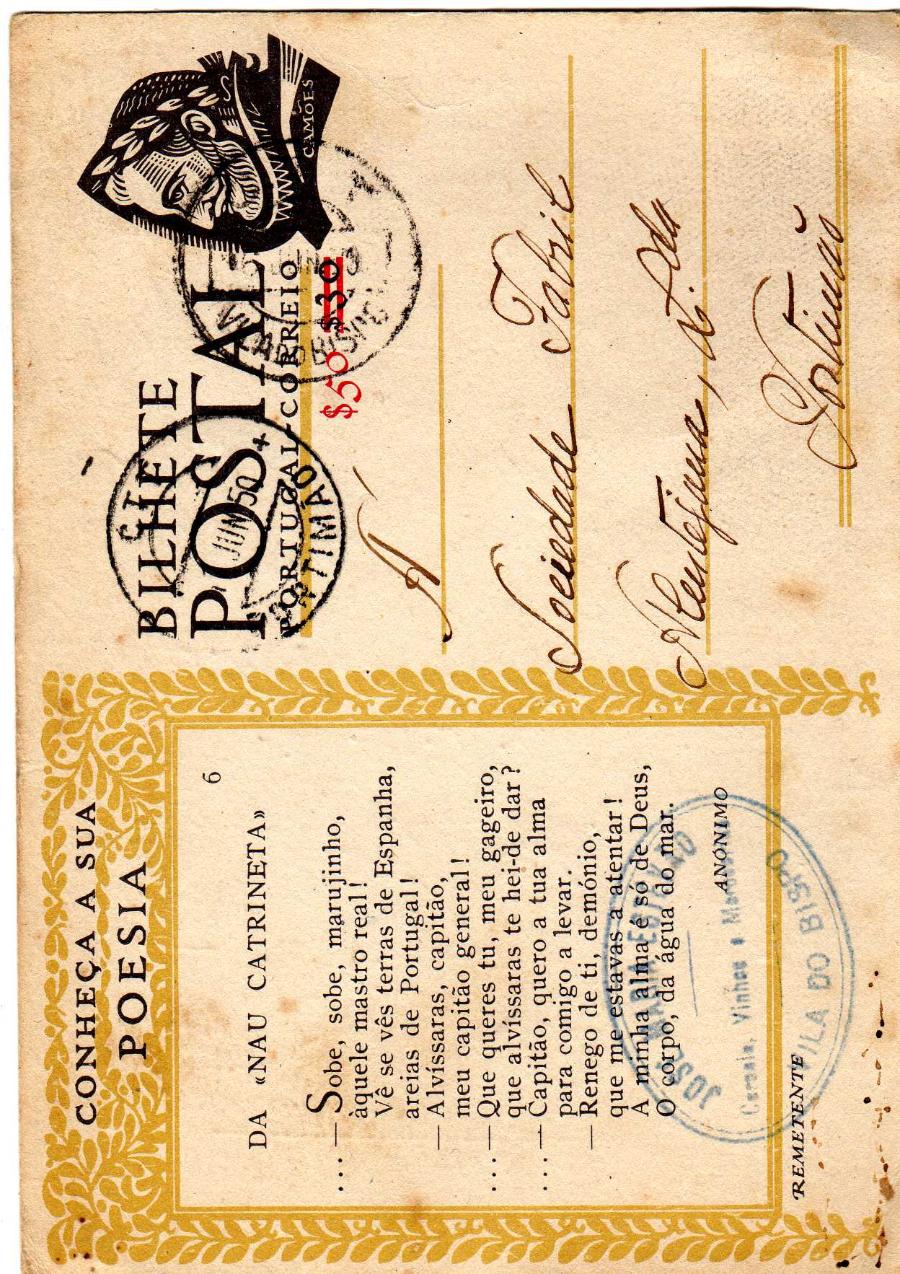 CONHEÇA A SUA
POESIA
6
DA «NAU CATRINETA»
... — Sobe, sobe, marujinho,
àquele mastro real!
Vê se vês terras de Espanha,
areias de Portugal!
— Alvíssaras, capitão,
meu capitão general!
... — Que queres tu, meu gageiro,
que alvíssaras te hei-de dar?
... — Capitão, quero a tua alma
para comigo a levar.
— Renego de ti, demónio,
que me estavas a atentar!
A minha alma é só de Deus,
O corpo, da água do mar.
ANÓNIMO
REMETENTE
JOSÉ MARIA ESTEVÃO
Cereais, Vinhos e
VILA DO BISPO
BILHETE
POSTAL
PORTUGAL-CORREIO
$50 $30
CAMÕES
JUN 50
PORTIMÃO
VILA DO BISPO
A
Sociedade Fabril
Lda
Portimão